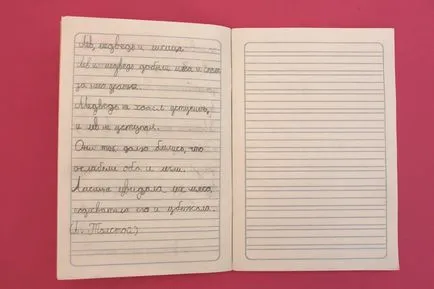 Лев, медведь и лисица
Лев и медведь добыли мяса и стали
за него драться.
Медведь не хотел уступить,
и лев не уступал.
Они так долго бились, что
ослабели оба и легли.
Лисица увидала их мясо,
подхватила его и убежала.
(Л. Толстой)